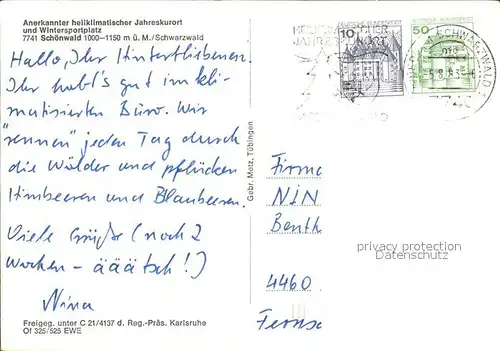 Anerkannter heilklimatischer Jahreskurort
und Wintersportplatz
7741 Schönwald 1000–1150 m ü. M./Schwarzwald
Hallo, Ihr Hinterbliebenen.
Ihr habt's gut im kli-
matisierten Büro. Wir
"rennen" jeden Tag durch
die Wälder und pflücken
Himbeeren und Blaubeeren.
Viele Grüße (noch 2
Wochen - äääätsch!)
Nina
Freigeg. unter C 21/4137 d. Reg.-Präs. Karlsruhe
Of 325/525 EWE
Gebr. Metz, Tübingen
HEILKLIMATISCHER
JAHRESKURORT
10
50
SCHWARZWALD 1
7740
Firma
NIN
Benth
4460
Ferns
privacy protection
Datenschutz